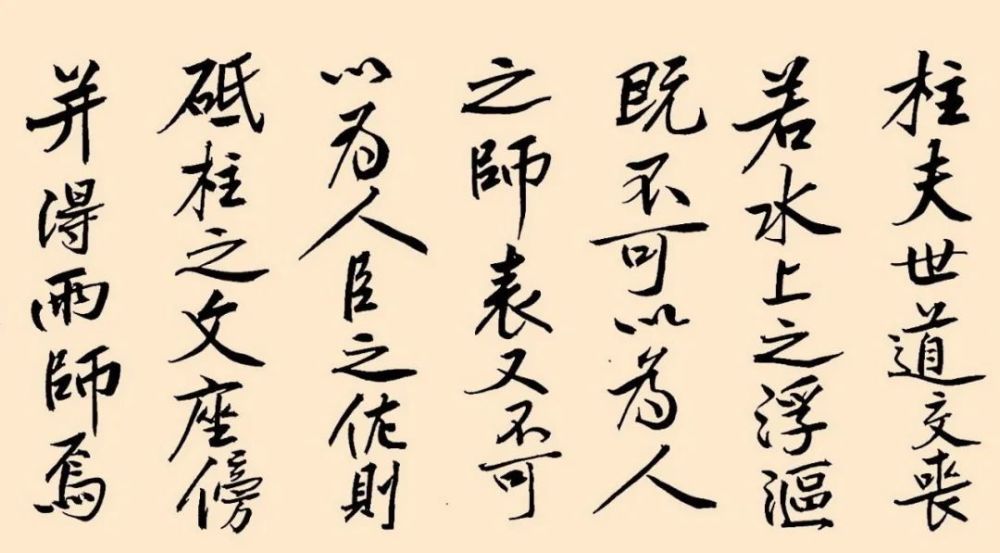 柱夫世道交喪
若水上之浮漚
既不可以為人
之師表又不可
以為人臣之佐則
砥柱之文座傍
并得兩師焉